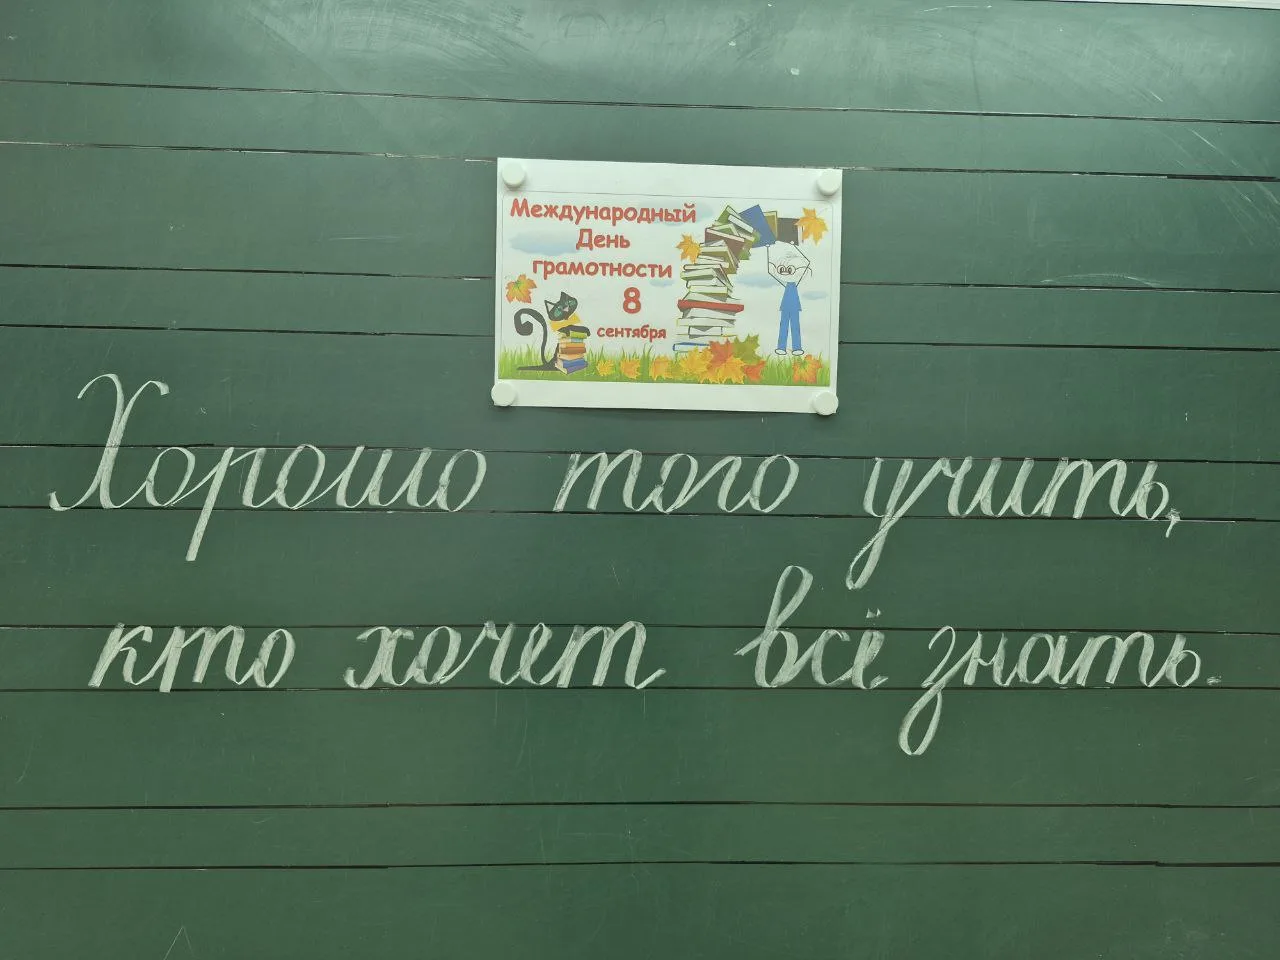 Международный
День
грамотности
8
сентября
Хорошо того учить,
кто хочет всё знать.